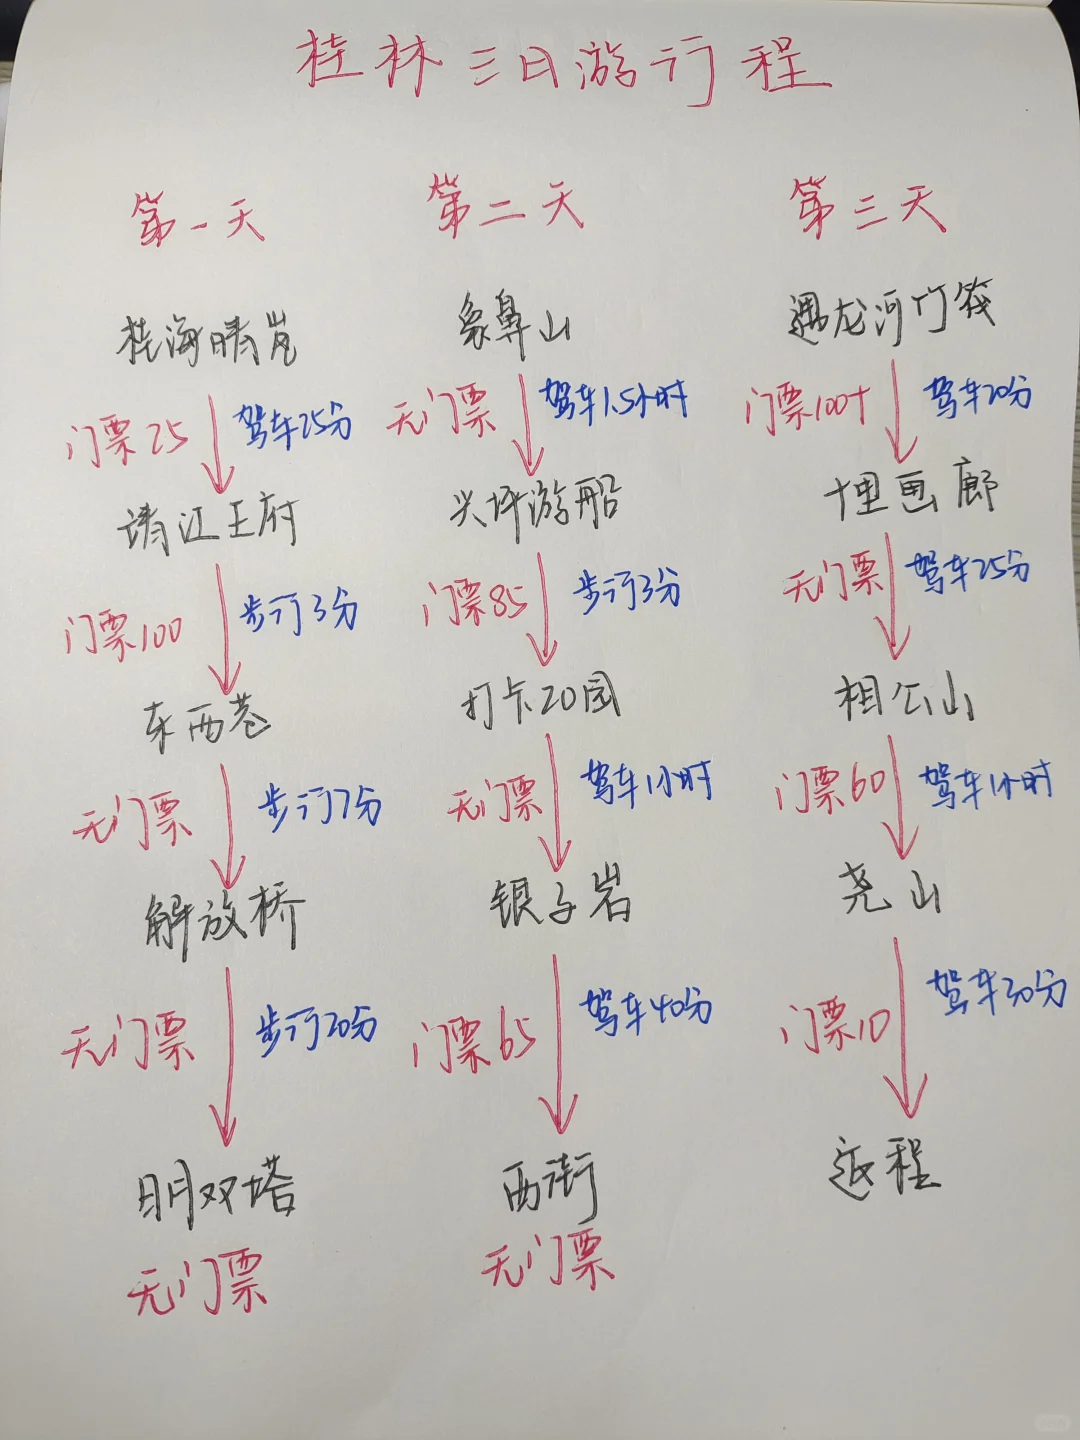 桂林三日游行程
第一天
桂海晴岚
门票25 驾车25分
靖江王府
门票100 步行3分
东西巷
无门票 步行7分
解放桥
无门票 步行20分
日月双塔
无门票
第二天
象鼻山
无门票 驾车1.5小时
兴坪游船
门票85 步行3分
打卡20园
无门票 驾车1小时
银子岩
门票65 驾车40分
西街
无门票
第三天
遇龙河竹筏
门票100+ 驾车20分
十里画廊
无门票 驾车25分
相公山
门票60 驾车1小时
尧山
门票10 驾车30分
返程